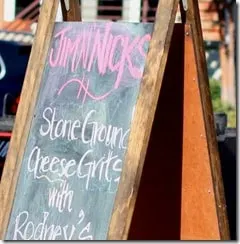 JIM N NICKS
Stone Ground
Cheese Grits
with
Rodney's